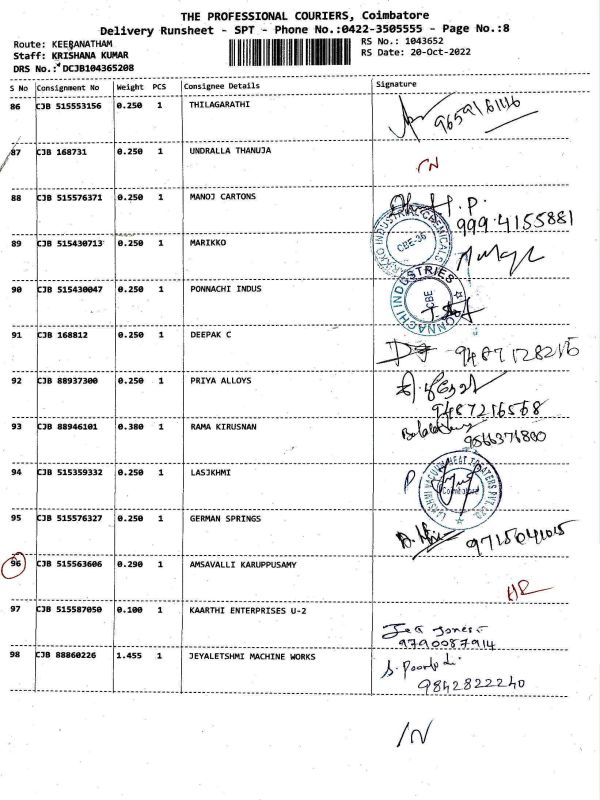 THE PROFESSIONAL COURIERS, Coimbatore
Delivery Runsheet - SPT - Phone No.:0422-3505555 - Page No.:8
Route: KEERANATHAM
RS No.: 1043652
Staff: KRISHANA KUMAR
RS Date: 20-Oct-2022
DRS No.: DCJB104365208
S No Consignment No Weight PCS Consignee Details Signature
86 CJB 515553156 0.250 1 THILAGARATHI
87 CJB 168731 0.250 1 UNDRALLA THANUJA
IN
88 CJB 515576371 0.250 1 MANOJ CARTONS
999 4155881
89 CJB 515430713 0.250 1 MARIKKO
INDUSTRIAL CHEMICALS
CBE-35
90 CJB 515430047 0.250 1 PONNACHI INDUS
PONNACHI INDUSTRIES
CBE
91 CJB 168812 0.250 1 DEEPAK C
92 CJB 88937300 0.250 1 PRIYA ALLOYS
9487216568
93 CJB 88946101 0.380 1 RAMA KIRUSNAN
9566376800
94 CJB 515359332 0.250 1 LASJKHMI
P
LAKSHMI VACUUM HEAT TREATERS PVT. LTD.
Coimbatore
95 CJB 515576327 0.250 1 GERMAN SPRINGS
96 CJB 515563606 0.290 1 AMSAVALLI KARUPPUSAMY
97 CJB 515587050 0.100 1 KAARTHI ENTERPRISES U-2
9790087914
98 CJB 88860226 1.455 1 JEYALETSHMI MACHINE WORKS
9842822240
IN